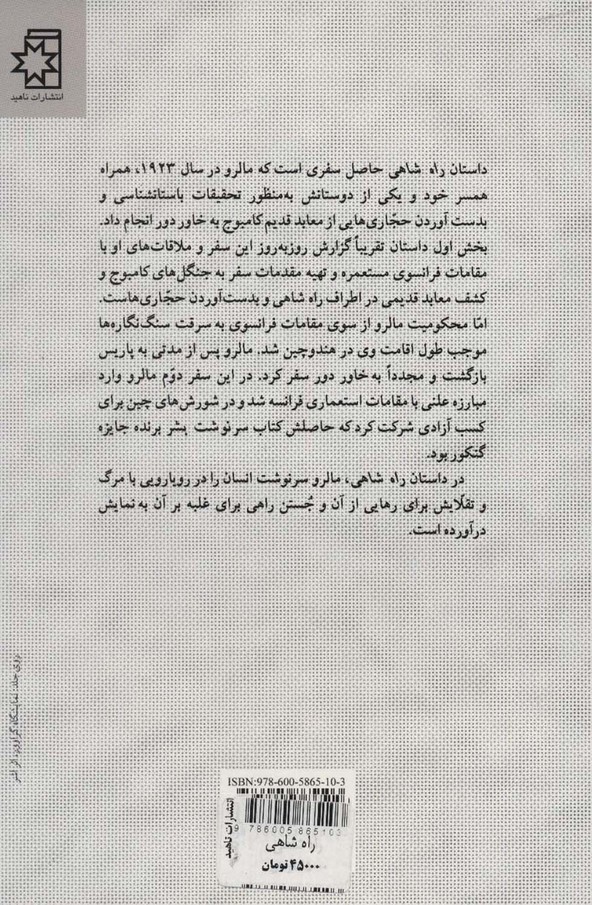 انتشارات ناهید
داستان راه شاهی حاصل سفری است که مالرو در سال ۱۹۲۳، همراه
همسر خود و یکی از دوستانش به‌منظور تحقیقات باستانشناسی و
بدست آوردن حجّاری‌هایی از معابد قدیم کامبوج به خاور دور انجام داد.
بخش اول داستان تقریباً گزارش روزبه‌روز این سفر و ملاقات‌های او با
مقامات فرانسوی مستعمره و تهیه مقدمات سفر به جنگل‌های کامبوج و
کشف معابد قدیمی در اطراف راه شاهی و بدست‌آوردن حجّاری‌هاست.
امّا محکومیت مالرو از سوی مقامات فرانسوی به سرقت سنگ‌نگاره‌ها
موجب طول اقامت وی در هندوچین شد. مالرو پس از مدتی به پاریس
بازگشت و مجدداً به خاور دور سفر کرد. در این سفر دوّم مالرو وارد
مبارزه علنی با مقامات استعماری فرانسه شد و در شورش‌های چین برای
کسب آزادی شرکت کرد که حاصلش کتاب سرنوشت بشر برنده جایزه
گنکور بود.
در داستان راه شاهی، مالرو سرنوشت انسان را در رویارویی با مرگ
و تقلّایش برای رهایی از آن و جُستن راهی برای غلبه بر آن به نمایش
درآورده است.
روی جلد: نمایشگاه گراوور،
ISBN:978-600-5865-10-3
انتشارات ناهید
9 786005 865103
راه شاهی
۴۵۰۰۰ تومان